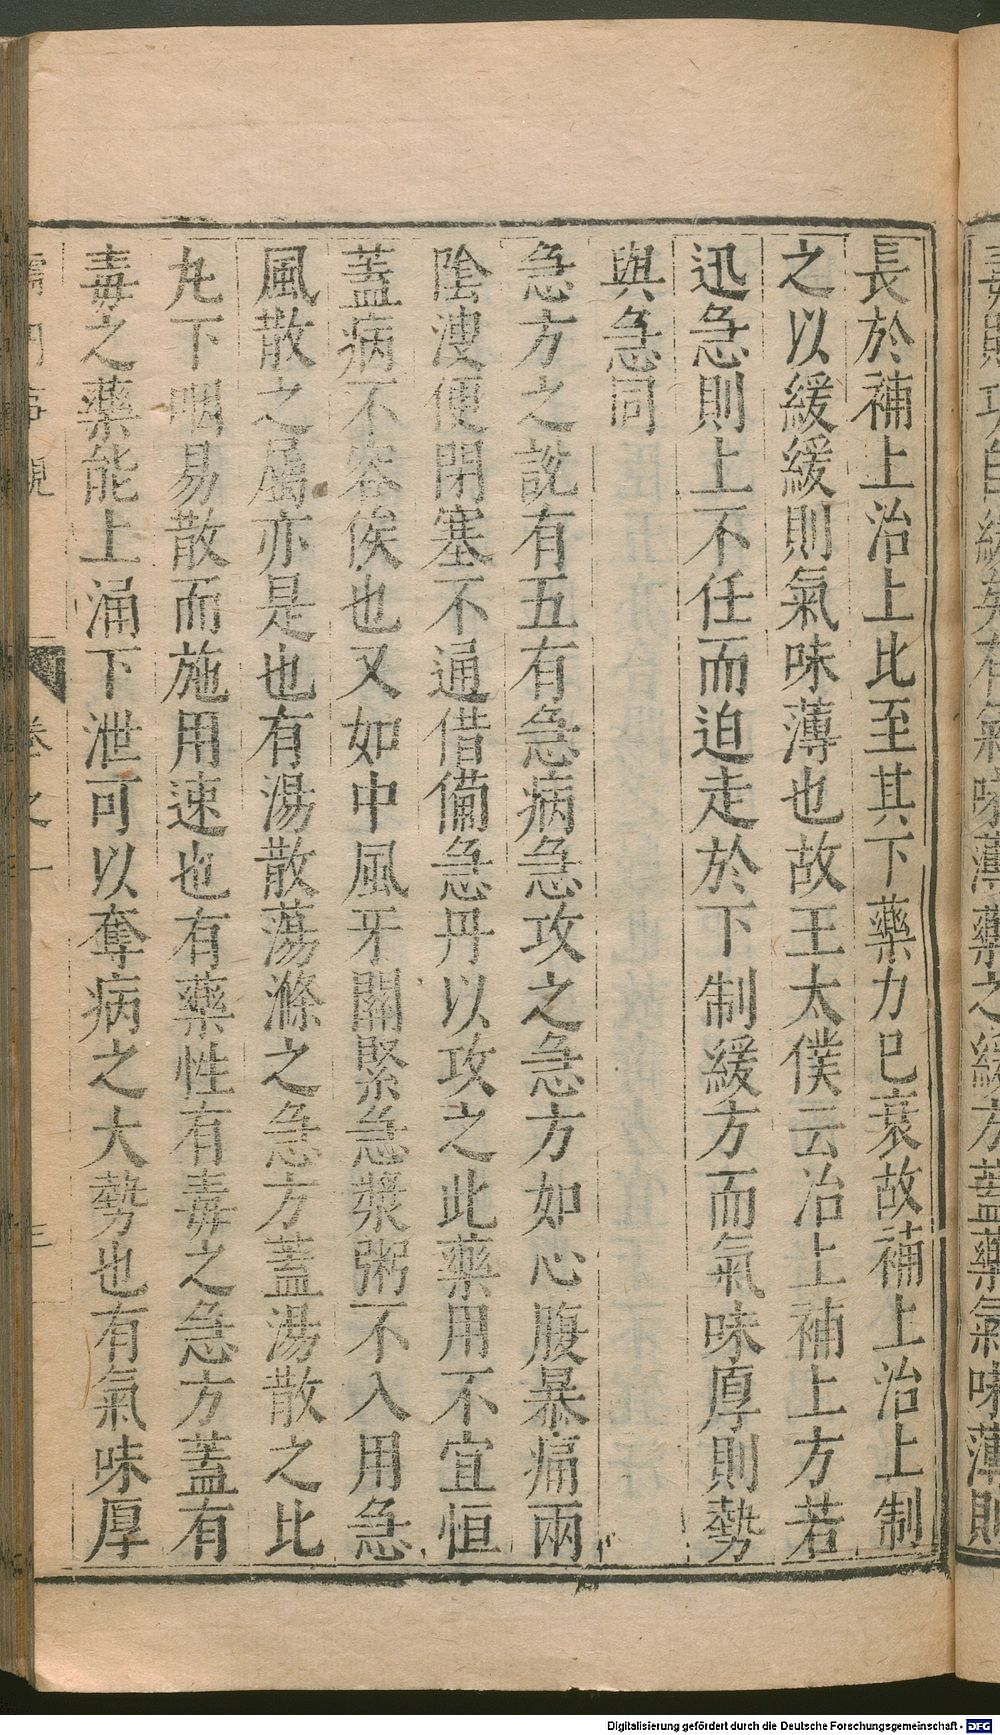 長於補上治上比至其下藥力已衰故補上治上制
之以緩緩則氣味薄也故王太僕云治上補上方若
迅急則上不任而迫走於下制緩方而氣味厚則勢
與急同
急方之說有五有急病急攻之急方如心腹暴痛兩
陰溲便閉塞不通借備急丹以攻之此藥用不宜恒
蓋病不容俟也又如中風牙關緊急漿粥不入用急
風散之屬亦是也有湯散蕩滌之急方蓋湯散之比
丸下咽易散而施用速也有藥性有毒之急方蓋有
毒之藥能上涌下泄可以奪病之大勢也有氣味厚
卷之一
三
Digitalisierung gefördert durch die Deutsche Forschungsgemeinschaft - DFG